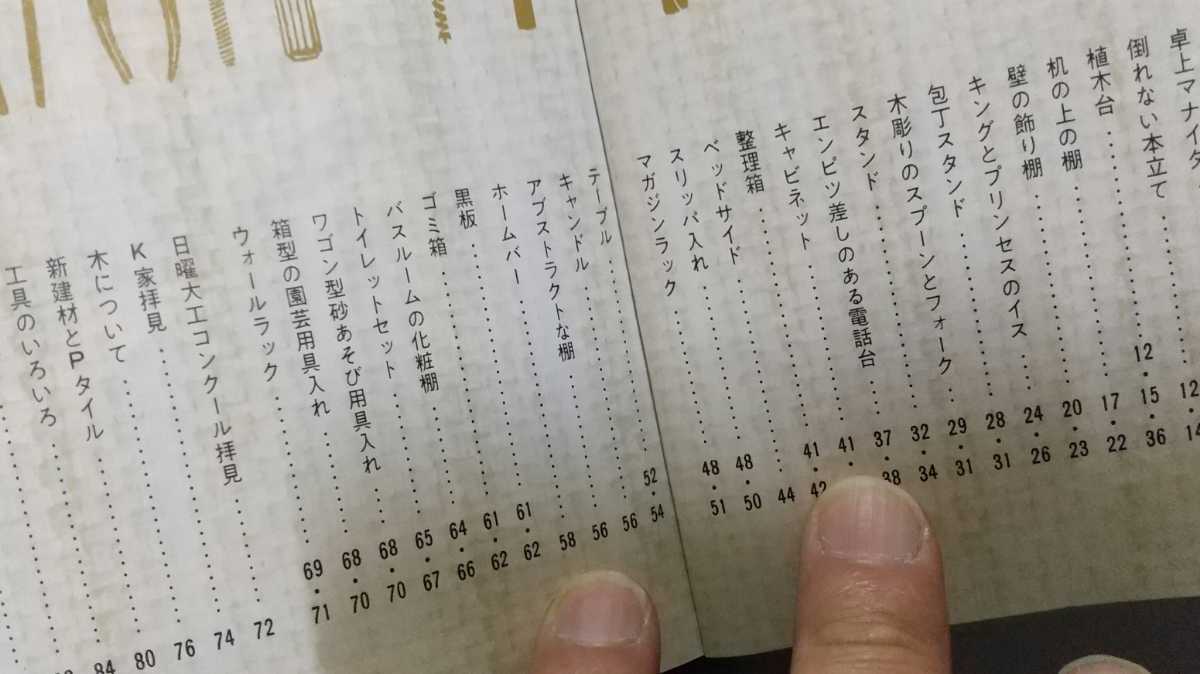 卓上マナイタ
倒れない本立て……12・14
植木台……12・15・36
机の上の棚……17・22
壁の飾り棚……20・23
キングとプリンセスのイス……24・26
包丁スタンド……28・31
木彫りのスプーンとフォーク……29・31
スタンド……32・34
エンピツ差しのある電話台……37・38
キャビネット……41・
整理箱……41・42
ベッドサイド……44
スリッパ入れ……48・50
マガジンラック……48・51
テーブル……52・54
キャンドル……56
アブストラクトな棚……56
ホームバー……58
黒板……61・62
ゴミ箱……61・62
バスルームの化粧棚……64・66
トイレットセット……65・67
ワゴン型砂あそび用具入れ……68・70
箱型の園芸用具入れ……68・70
ウォールラック……69・71
日曜大工コンクール拝見……72
K家拝見……74
木について……76
新建材とPタイル……80
工具のいろいろ……84